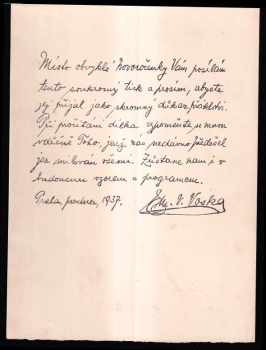 Místo obvyklé Novoročenky Vám posílám
tento soukromý tisk a prosím, abyste
jej přijal jako skromný důkaz přátelství.
Při pročítání dílka vzpomeňte se mnou
vděčně Toho, jenž nás nedávno předešel
jsa milován všemi. Zůstane nám i v
budoucnu vzorem a programem.
Praha, prosinec, 1937.
Em. V. Voska